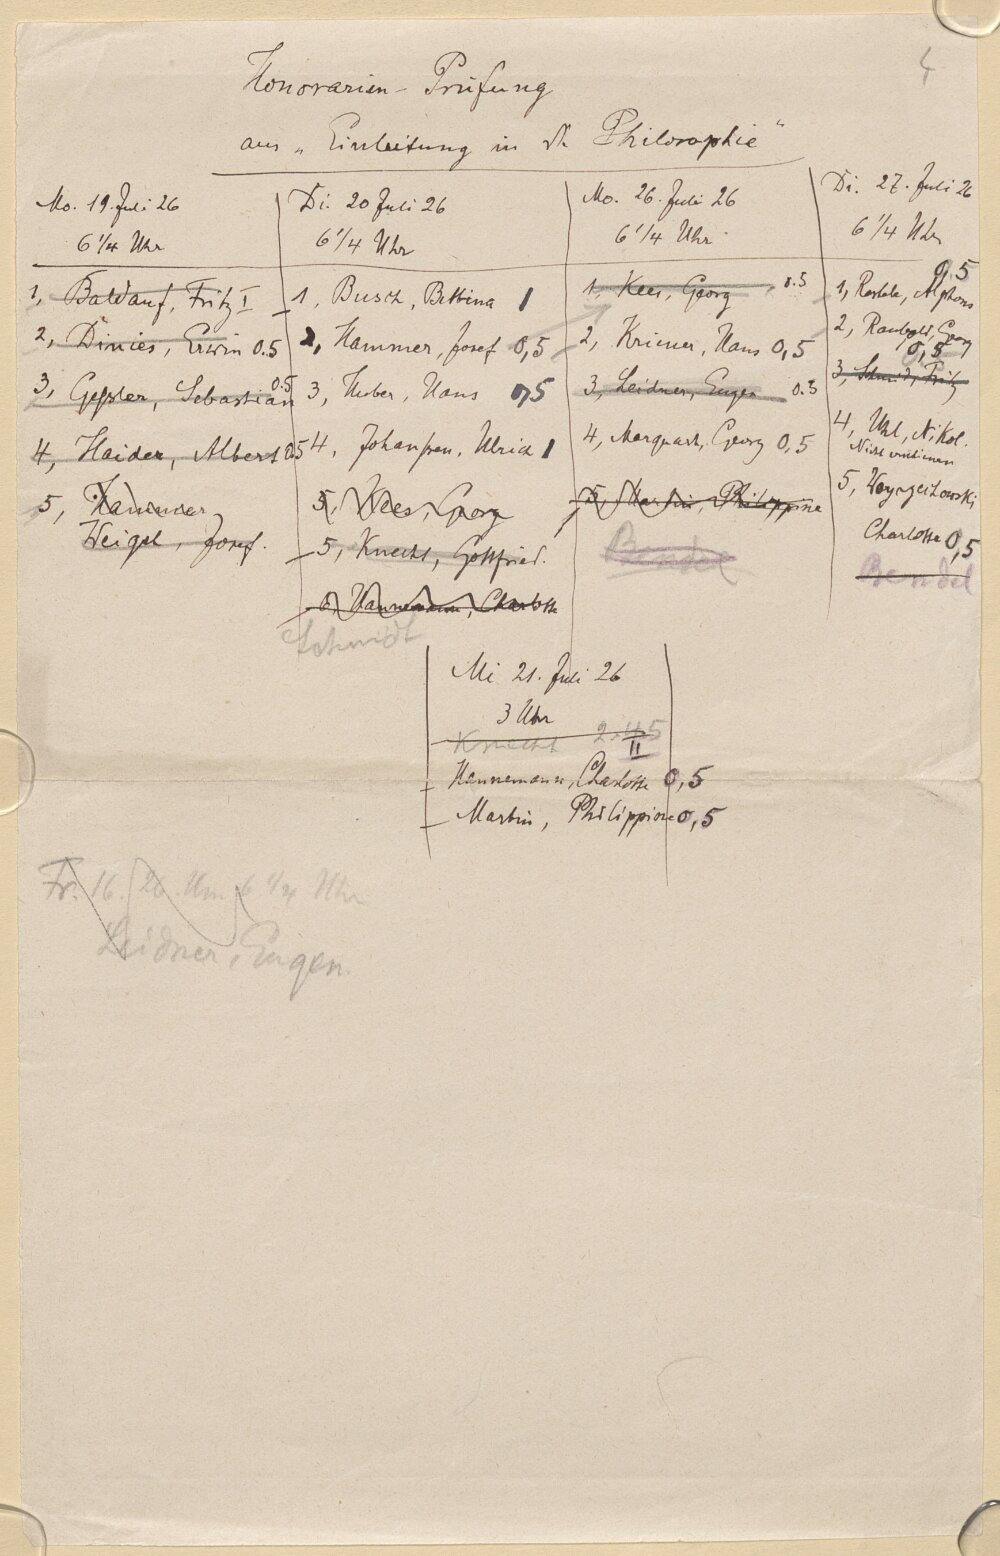 4
Honorarien-Prüfung
aus „Einleitung in d. Philosophie“
Mo. 19. Juli 26
6 1/4 Uhr
1, Baldauf, Fritz I
2, Dinies, Erwin 0.5
3, Gessler, Sebastian 0.5
4, Haider, Albert 0.5
5, Hammer
Weigel, Josef.
Di. 20 Juli 26
6 1/4 Uhr
1, Busch, Bettina 1
2, Hammer, Josef 0,5
3, Huber, Hans 0,5
4, Johanssen, Ulrich 1
5, Kees, Georg
5, Knecht, Gottfried.
6, Hannemann, Charlotte
Schmidt
Mo. 26. Juli 26
6 1/4 Uhr
1, Kees, Georg 0.5
2, Kriener, Hans 0,5
3, Leidner, Eugen 0.5
4, Marquart, Georg 0,5
5, Martin, Philippine
Bendel
Di. 27. Juli 26
6 1/4 Uhr
0,5
1, Alphons
2, Georg
0,5
3, Schmid, Fritz
4, Uhl, Nikol.
Nicht
5, Woyzechowski,
Charlotte 0,5
Bendel
Mi 21. Juli 26
3 Uhr
Knecht 2.45
II
Hannemann, Charlotte 0,5
Martin, Philippine 0,5
Fr. 16. 26. Um 6 1/4 Uhr
Leidner, Eugen.